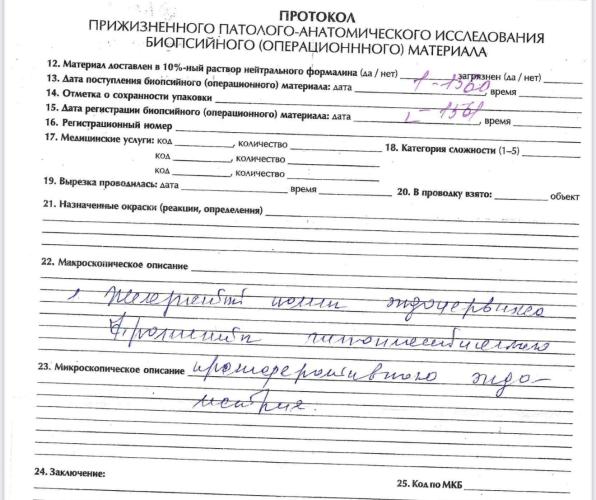 ПРОТОКОЛ
ПРИЖИЗНЕННОГО ПАТОЛОГО-АНАТОМИЧЕСКОГО ИССЛЕДОВАНИЯ
БИОПСИЙНОГО (ОПЕРАЦИОНННОГО) МАТЕРИАЛА
12. Материал доставлен в 10%-ный раствор нейтрального формалина (да / нет) загрязнен (да / нет)
13. Дата поступления биопсийного (операционного) материала: дата 1 - 1560, время
14. Отметка о сохранности упаковки
15. Дата регистрации биопсийного (операционного) материала: дата - 1561, время
16. Регистрационный номер
17. Медицинские услуги: код , количество 18. Категория сложности (1–5)
код , количество
код , количество
19. Вырезка проводилась: дата время 20. В проводку взято: объект
21. Назначенные окраски (реакции, определения)
22. Макроскопическое описание
Железистый полип эндоцервикса
Фрагменты гипопластического
23. Микроскопическое описание пролиферативного эндо-
метрия.
24. Заключение: 25. Код по МКБ